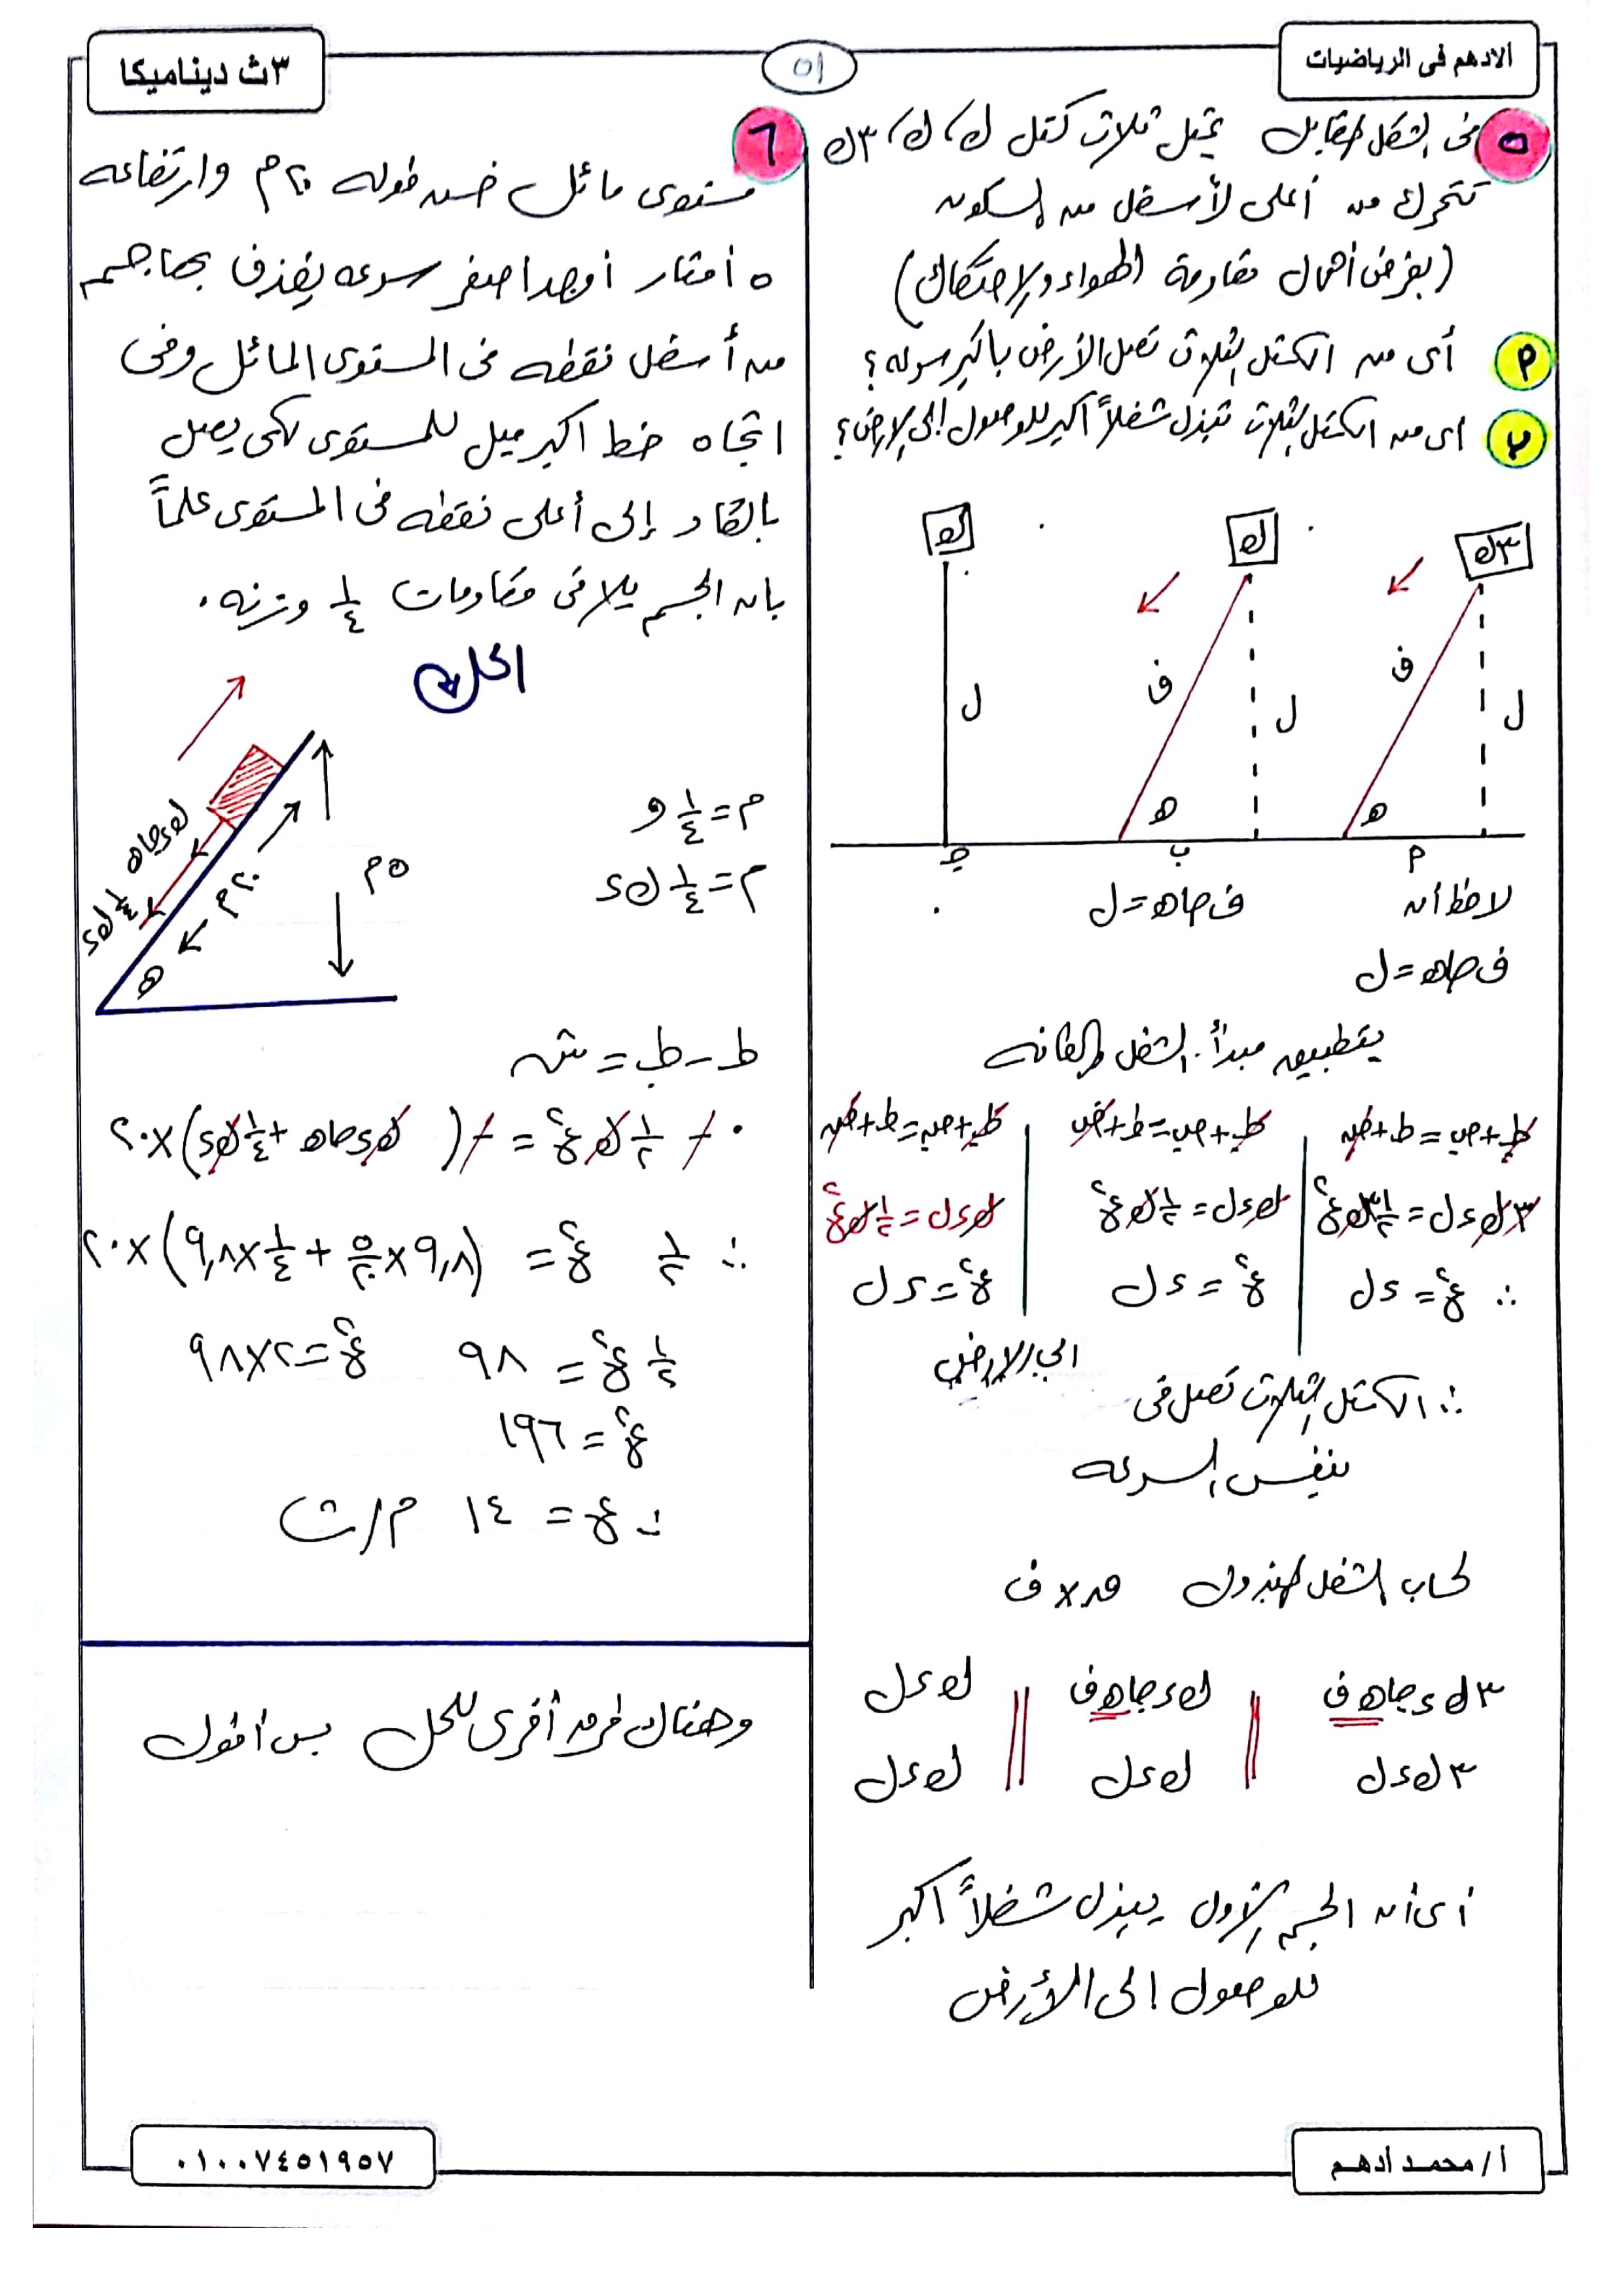 الادهم فى الرياضيات
٥١
٣ث ديناميكا
٥ فى الشكل المقابل يمثل ثلاث كتل ك، ك، ٣ك
تتحرك من أعلى لأسفل من السكون
(بفرض أهمال مقاومة الهواء والإحتكاك)
م أى من الكتل الثلاث تصل الأرض بأكبر سرعه ؟
ب اى من الكتل الثلاث تبذل شغلاً أكبر للوصول إلى الارض ؟
٣ك ك ك
ف ل ف ل ل
ه ه
م ب ج
لاحظ أن ف جاه = ل
ف جاه = ل
بتطبيق مبدأ الشغل والطاقه
ط. + ض. = ط + ض ط. + ض. = ط + ض ط. + ض. = ط + ض
٣ك ء ل = ١/٢ ٣ك ع٢ ك ء ل = ١/٢ ك ع٢ ك ء ل = ١/٢ ك ع٢
∴ ع٢ = ء ل ع٢ = ء ل ع٢ = ء ل
∴ الكتل الثلاث تصل فى الى الارض
بنفس السرعه
لحساب الشغل المبذول ق × ف
٣ ك ء جاه ف ك ء جاه ف ك ء ل
٣ ك ء ل ك ء ل ك ء ل
أى أن الجسم الأول يبذل شغلاً اكبر
للوصول الى الأرض
٦ مستوى مائل خسن طوله ٢٠م وارتفاعه
٥ أمتار أوجد اصغر سرعه يقذف بها جسم
من أسفل نقطه فى المستوى المائل وفى
اتجاه خط اكبر ميل للمستوى لكى يصل
بالكاد إلى أعلى نقطه فى المستوى علماً
بان الجسم يلاقى مقاومات ١/٤ وزنه .
الحل
م = ١/٤ و
م = ١/٤ ك ء
ك ء جاه
١/٤ ك ء
٢٠م
٥م
ه
ط - ط. = ش
٠ - ١/٢ ك ع٢ = -( ك ء جاه + ١/٤ ك ء) × ٢٠
∴ ١/٢ ع٢ = (٩,٨ × ٥/٢٠ + ١/٤ × ٩,٨) × ٢٠
١/٢ ع٢ = ٩٨ ع٢ = ٢ × ٩٨
ع٢ = ١٩٦
∴ ع = ١٤ م/ث
وهناك طرق أخرى للحل بس أطول
أ / محمد ادهم
٠١٠٠٧٤٥١٩٥٧